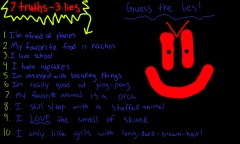 7 truths - 3 lies
Guess the lies!
1. I'm afraid of planes
2. My favorite food is nachos
3. I love school
4. I hate cupcakes
5. I'm obsessed with breaking things
6. I'm really good at ping-pong
7. My favorite animal is a orca
8. I still sleep with a stuffed animal
9. I LOVE the smell of skunk
10. I only like girls with long, dark-brown-hair!